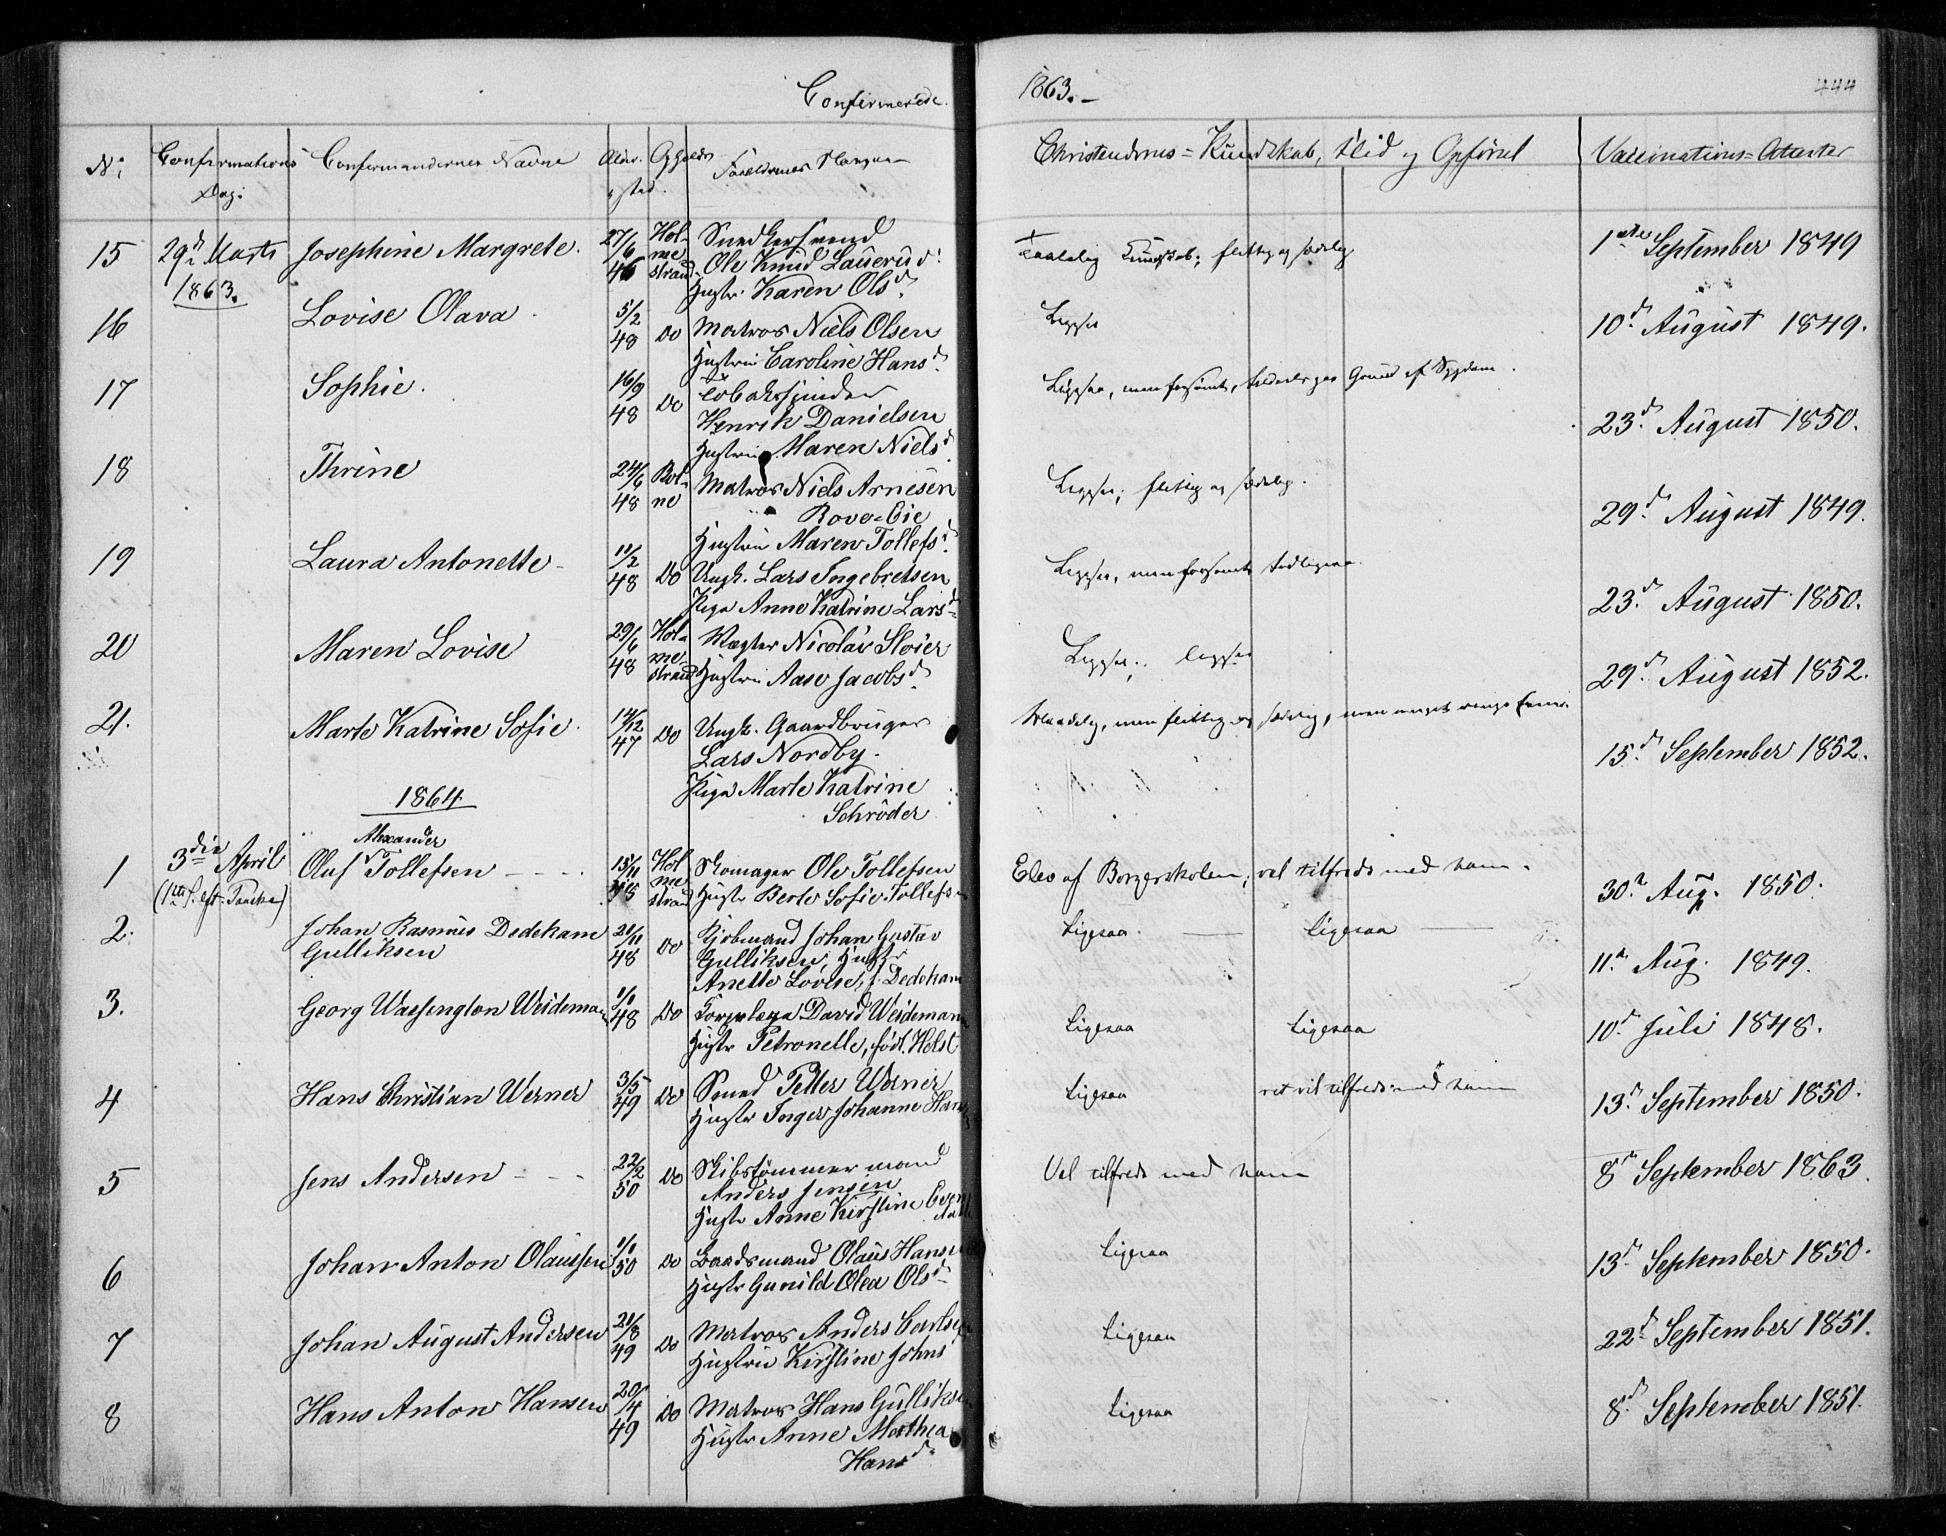 Confirmerede 1863.
444
No: Confirmations Dag: Confirmandernes Navne Alder Opholdssted. Forældrenes
Christendoms-Kundskab, Flid og Opførsel Vaccinations-Attester
15 29d Marts 1863. Josephine Margrete. 27/6 46 Holmestrand Snedkersvend
Ole Knud Lauerud
Hustr. Karen Olsd.
Taalelig Kundskab; flittig og sædelig 1ste September 1849
16 Lovise Olava. 5/2 48 Do Matros Niels Olsen
Hustrue Caroline Hansd.
Ligesaa 10d. August 1849.
17 Sophie. 16/9 48 Do Tobaksspinder
Henrik Danielsen
Hustrue Maren Nielsd.
Ligesaa, men forsømt, paa Grund af Sygdom. 23d. August 1850.
18 Thrine 24/6 48 Botne Matros Niels Arnesen
Rove-Eie
Hustrue Maren Tollefsd.
Ligesaa; flittig og sædelig. 29d. August 1849.
19 Laura Antonette 11/2 48 Do Ungk. Lars Ingebretsen
Pige Anne Katrine Larsd.
Ligesaa, men forsømt 23d. August 1850.
20 Maren Lovise 29/6 48 Holmestrand Vægter Nicolai Sloier
Hustrue Aase Jacobsd.
Ligesaa; ligesaa 29d. August 1852.
21. Marte Katrine Sofie. 14/12 47 Do Ungk. Gaardbruger
Lars Nordby.
Pige Marte Katrine
Schrøder
men flittig og sædelig, men meget ringe 15d September 1852.
1864
1 3die April (1ste S. eft. Paaske) Oluf Alexander Tollefsen 15/11 Holmestrand Skomager Ole Tollefsen
Hustr Berte Sofie Tollefs
Elev af Borgerskolen; vel tilfreds med ham. 30d Aug. 1850.
2. Johan Rasmus Dedekam
Gulliksen 21/11 48 Do Kjøbmand Johan Gustav
Gulliksen, Hustr
Anette Lovise, f. Dedekam
Ligesaa. Ligesaa 11d Aug. 1849.
3. Georg Wassengton Weideman 1/1 48 Do David Weidemann
Hustr Petronelle, født Holst
Ligesaa Ligesaa 10d Juli 1848.
4 Hans Christian Werner 3/5 49 Do Smed Petter Werner
Hustr Inger Johanne Hans
Ligesaa ret vel tilfreds med ham 13d September 1850.
5 Jens Andersen 22/2 50 Do Skibstømmermand
Anders Jensen
Hustr Anne Kirstine
Vel tilfreds med ham 8d September 1863.
6 Johan Anton Olaussen 1/1 50 Do Baadsmand Olaus Hansen
Hustr Gunild Olea Olsd
Ligesaa 13d September 1850.
7 Johan August Andersen 21/8 49 Do Matros Anders Carlsen
Hustrue Kirstine Johns
Ligesaa 22d September 1851.
8 Hans Anton Hansen 20/4 49 Do Matros Hans Gulliksen
Hustr Anne Marthea
Hansd.
Ligesaa 8d September 1851.